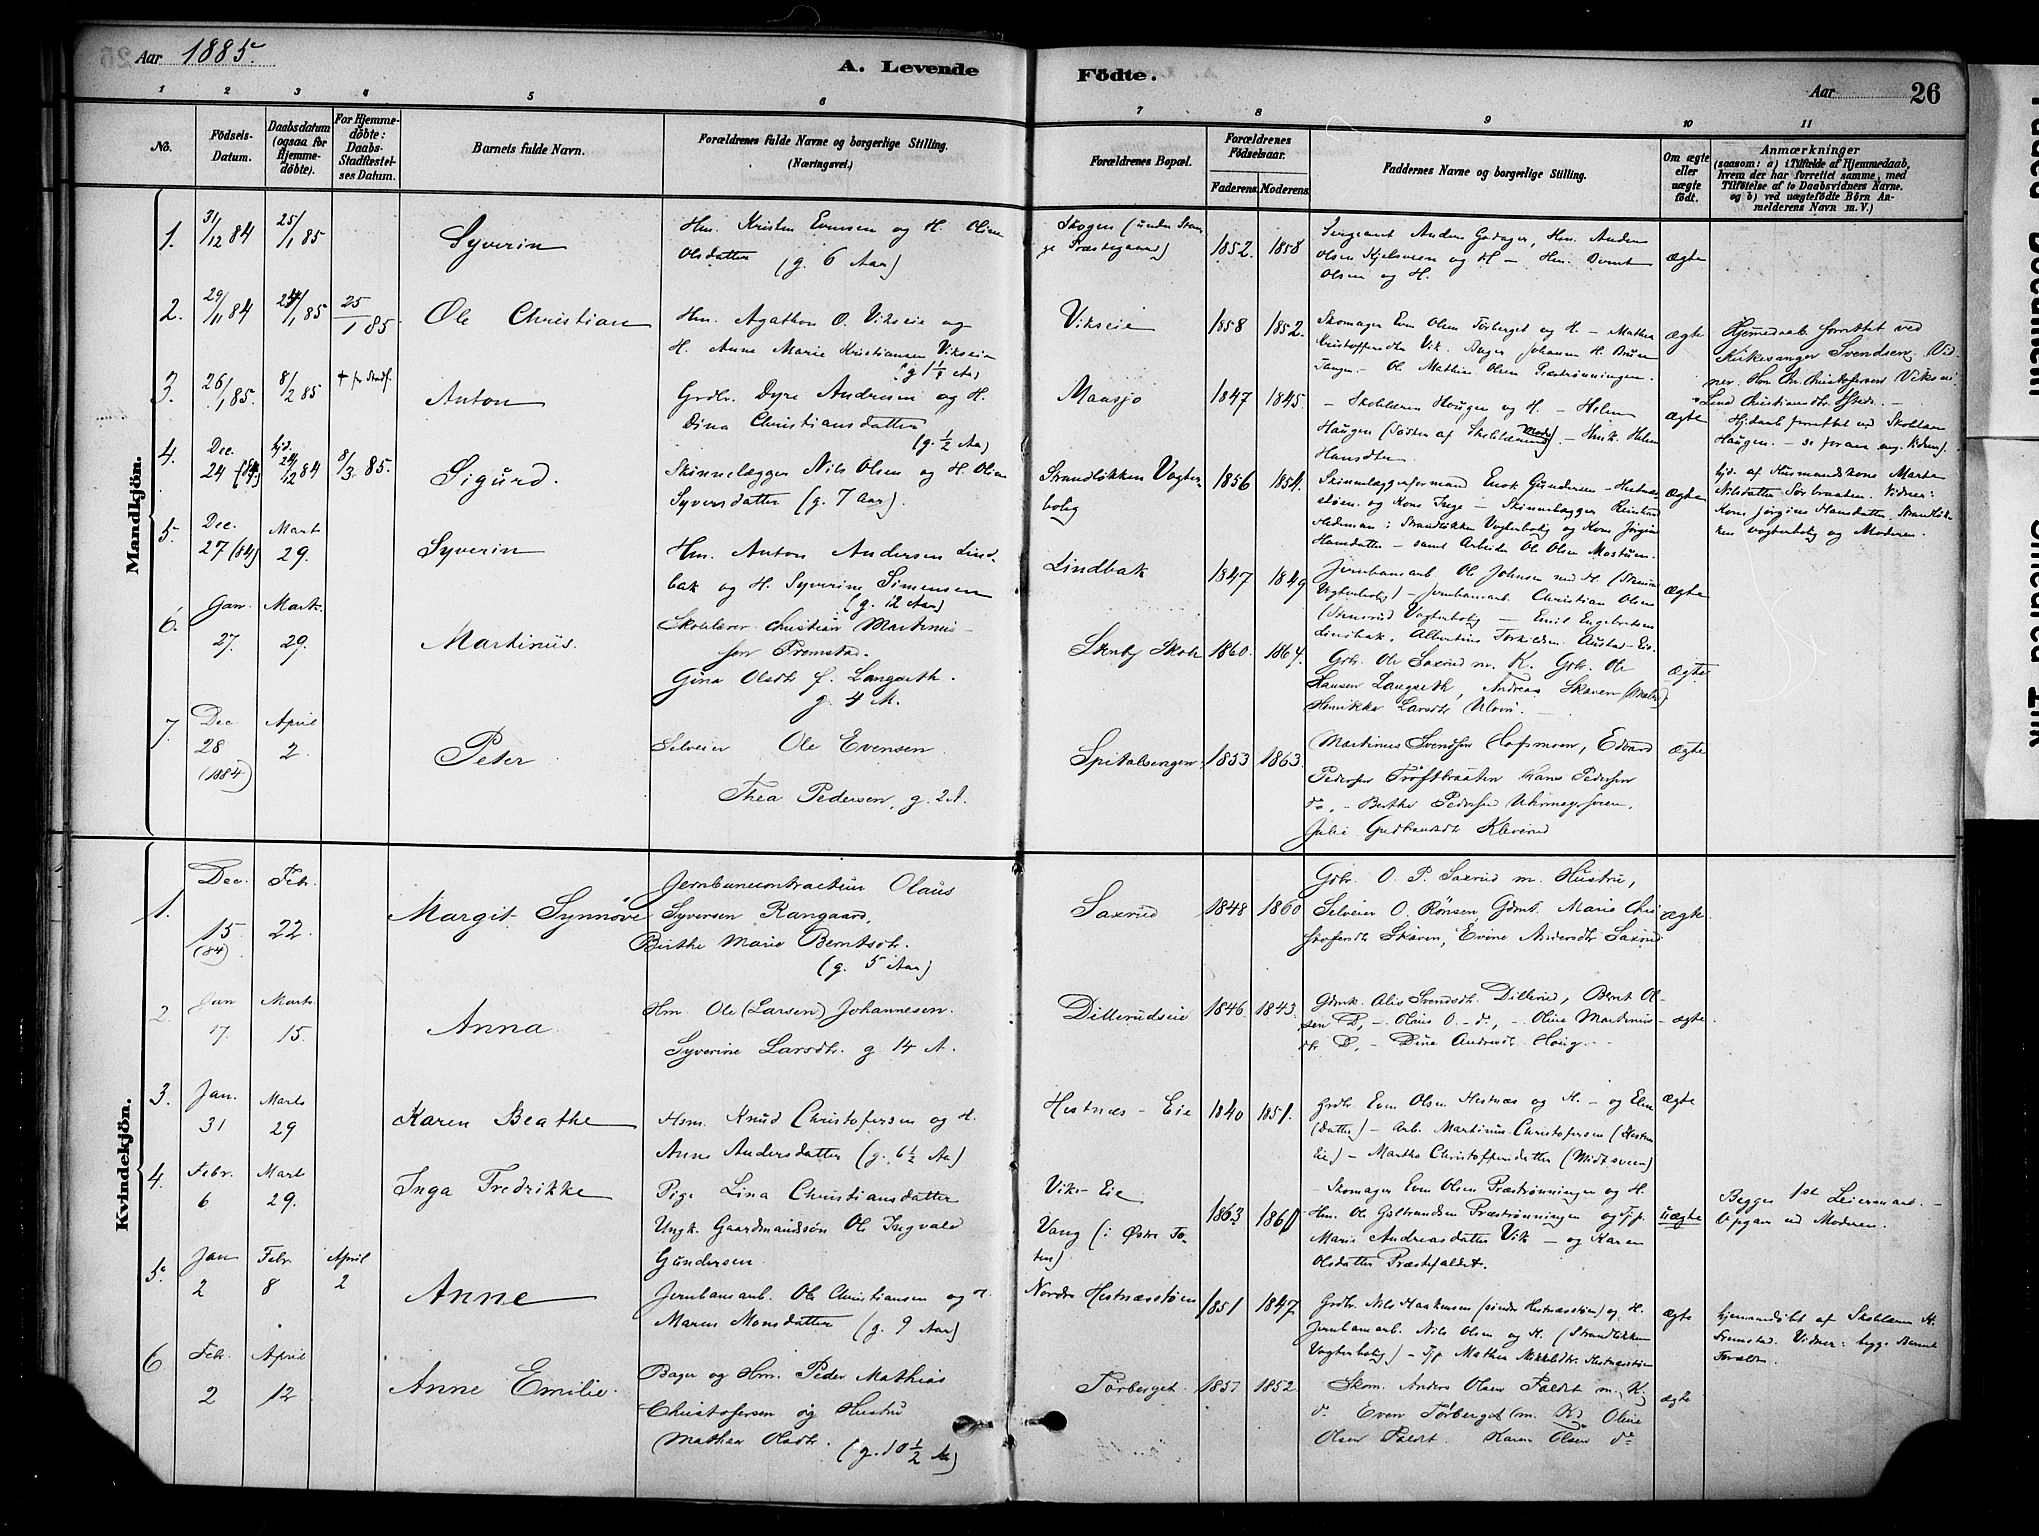 Aar 1885.
A. Levende Födte.
Aar 26
1 2 3 4 5 6 7 8 9 10 11
No.
Födsels-Datum.
Daabsdatum (ogsaa for Hjemmedöbte).
For Hjemmedöbte: Daabs-Stadfæstelses Datum.
Barnets fulde Navn.
Forældrenes fulde Navne og borgerlige Stilling. (Næringsvei.)
Forældrenes Bopæl.
Forældrenes Födselsaar.
Faderens. Moderens.
Faddernes Navne og borgerlige Stilling.
Om ægte eller uægte födt.
Anmærkninger
(saasom: a) i Tilfælde af Hjemmedaab,
hvem der har forrettet samme, med
Tilföielse af to Daabsvidners Navne.
og b) ved uægtefödte Börn An-
melderens Navn m. V.)
Mandkjön.
1. 31/12 84 25/1 85 Syverin
Hm. Kristen Evensen og H. Oline
Olsdatter (g. 6 Aar)
Skogen (under Stan-
ge Præstegaard)
1852. 1858
Sergeant Anders Godager, Hm. Anders
Olsen Kjelsveen og H — Hm. Bernt
Olsen og H.
ægte
2. 29/11 84 1 85 25/1 85. Ole Christian
Hm. Agathon O. Vikseie og
H. Anne Marie Kristiansen Vikseie
(g 1 1/4 Aar)
Vikseie
1858 1852.
Skomager Even Olsen Törberget og H. — Mathea
Kristoffersdtr Vik. Bager Johansen H. Bruen
Tangen — Ol. Mathias Olsen Præstrønningen.
ægte
Hjemedaab forrettet ved
Kirkesanger Svendsen. Vid-
ner. Hm. Chr. Christofersen Viksei
Lina Christiansdtr ibsteds. —
3. 26/1 85. 8/2 85 + før Stadf. Anton
Grdbr. Dyre Andresen og H.
Dina Christiansdatter
(g. 1/2 Aar)
Maasjø
1847 1845.
— Skolelærer Hougen og H. — Helene
Haugen (Søster af Skolelærer) — Henrik Helene
Hansdtr.
ægte
Hjdaab forrettet ved Skolelærer
Haugen. —
4. Dec. 24 (84) hjd. 24/12 84 8/3 85. Sigurd.
Skinnelægger Nils Olsen og H. Oline
Syversdatter (g. 7 Aar).
Strandløkken Vogter-
bolig
1856 1854.
Skinnelæggerformand Enok Gundersen — Hestnæs-
støen. og Kone Inge — Skinnelægger Reinhard
Hedeman i Strandløkken Vogterbolig og Kone Jørgine
Hansdatter — samt Arbeider Ole Olsen Mostuen.
ægte
hjd. af Husmandskone Marte
Nilsdatter Sørbraaten. Vidner:
Kone Jørgine Hansdatter, Strandløk-
ken vogterbolig og Moderen.
5. Dec. 27 (84) Marts 29. Syverin
Hm. Anton Andersen Lind-
bak og H. Syverine Simensen
(g. 12 Aar)
Lindbak
1847 1849
Jernbanearb. Ole Johnsen med H. (Stensrud
Vogterbolig) — Jernbanearb. Christian Olsen
(Stensrud Vogterbolig — Emil Engebretsen
Lindbak, Albertine Torkildsen Austad-Eie.
ægte
6. Jan. 27. Marts. 29. Martinus.
Skolelærer Christian Martinus-
sen Fremstad.
Gina Olsdtr f. Langseth.
g. 4 A.
Stenby Skole
1860. 1864.
Grbr. Ole Saxrud m. K. Grbr. Ole
Hansen Langseth, Andreas Skaven
Henrikke Larsdtr Uloven.
ægte
7. Dec 28 (1884) April 2. Peter
Selveier Ole Evensen.
Thea Pedersen, g. 2 A.
Spitalsengen
1853 1863.
Martinus Svendsen Hofsmoen, Edvard
Pedersen Trøftbraaten Hans Pedersen
do, — Berthe Pedersen
Julie Gudbrandsdtr Kleverud
ægte
Kvindekjön.
1. Dec. 15. (84) Febr. 22. Margit Synnøve
Jernbanecontracteur Olaus
Syversen Rangaard,
Berthe Marie Berntsdtr.
(g. 5 Aar)
Saxrud
1848 1860
Grbr. O. P. Saxrud m. Hustru,
Selveier O. Rønsen, Gdmt. Marie Chri-
stofersdtr Skaven, Evine Andersdtr Saxrud
ægte.
2. Jan 17. Marts. 15. Anna.
Hm. Ole (Larsen) Johannesen.
Syverine Larsdtr. g 14 A.
Dillerudseie
1846 1843.
Gdmk. Alis Svendsdtr. Dillerud, Bernt Ol-
sen D, — Olaus O. — do, — Oline Martinus-
dtr D, — Dina Andersdtr Houg. —
ægte.
3. Jan. 31 Marts 29 Karen Beathe
Hsm. Knud Christofersen og H.
Anne Andersdatter (g. 6 1/2 Aar)
Hestnæs-Eie
1840 1851.
Grdbr. Even Olsen Hestnæs og H. — og Eline
(Datter) — Arb. Martinus Christofersen (Hestnæs
Eie) — Martha Christoffersdatter (Midtsveen)
ægte
4. Febr. 6 Marts 29. Inga Fredrikke
Pige Lina Christiansdatter
Ungk. Gaardmandssøn Ole Ingvald
Gundersen.
Viks-Eie
Vang (i Østre To-
ten)
1863 1860
Skomager Even Olsen Præstrønningen og H.
Hm. Ole Gulbrandsen Præstrønningen og Tjp.
Marie Andreasdatter Vik — og Karen
Olsdatter Præstefaldet.
uægte
Begges 1st Leiermaal. —
Opgav ved Moderen.
5. Jan 2 Febr. 8 April 2 Anne
Jernbanearb. Ole Christiansen og H.
Maren Monsdatter (g. 9 Aar)
Nordre Hestnæsstøen
1851 1847
Grdbr. Nils Haakensen (søndre Hestnæsstøen) og H.
Jernbanearb. Nils Olsen og H. (Strandløkken
Vogterbolig) — Tjp Mathea Mikkelsdtr. Hestnæsstøen
ægte
hjemmedøbt af Skolelærer
Fremstad. Vidner: begge Barnets
Forældre.
6. Febr. 2 April. 12 Anne Emilie.
Bager og Hm. Peder Mathias
Christofersen og Hustru
Mathea Olsdtr. (g. 10 1/2 Aar)
Törberget.
1857 1852.
Skom. Anders Olsen Faldet m. K,
do. Even Törberget (m. K) Oline
Olsen Faldet. Karen Olsen do
ægte